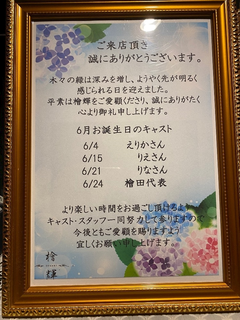 ご来店頂き
誠にありがとうございます。
木々の緑は深みを増し、ようやく先が明るく
感じられる日を迎えました。
平素は檜輝をご愛顧くださり、誠にありがたく
心より御礼申し上げます。
6月お誕生日のキャスト
6/4 えりかさん
6/15 りえさん
6/21 りなさん
6/24 檜田代表
より楽しい時間をお過ごし頂けるよう
キャスト・スタッフ一同努力して参りますので
今後ともご愛顧を賜りますよう
宜しくお願い申し上げます。
檜
輝